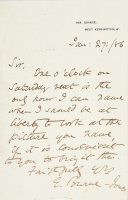 THE GRANGE,
WEST KENSINGTON, W.
Jan: 27/86
Sir,
One o'clock on
Saturday next is the
only hour I can name
when I should be at
liberty to look at the
picture you name,
if it is convenient
to you to bring it then
Faithfully yrs
E. Burne-Jones